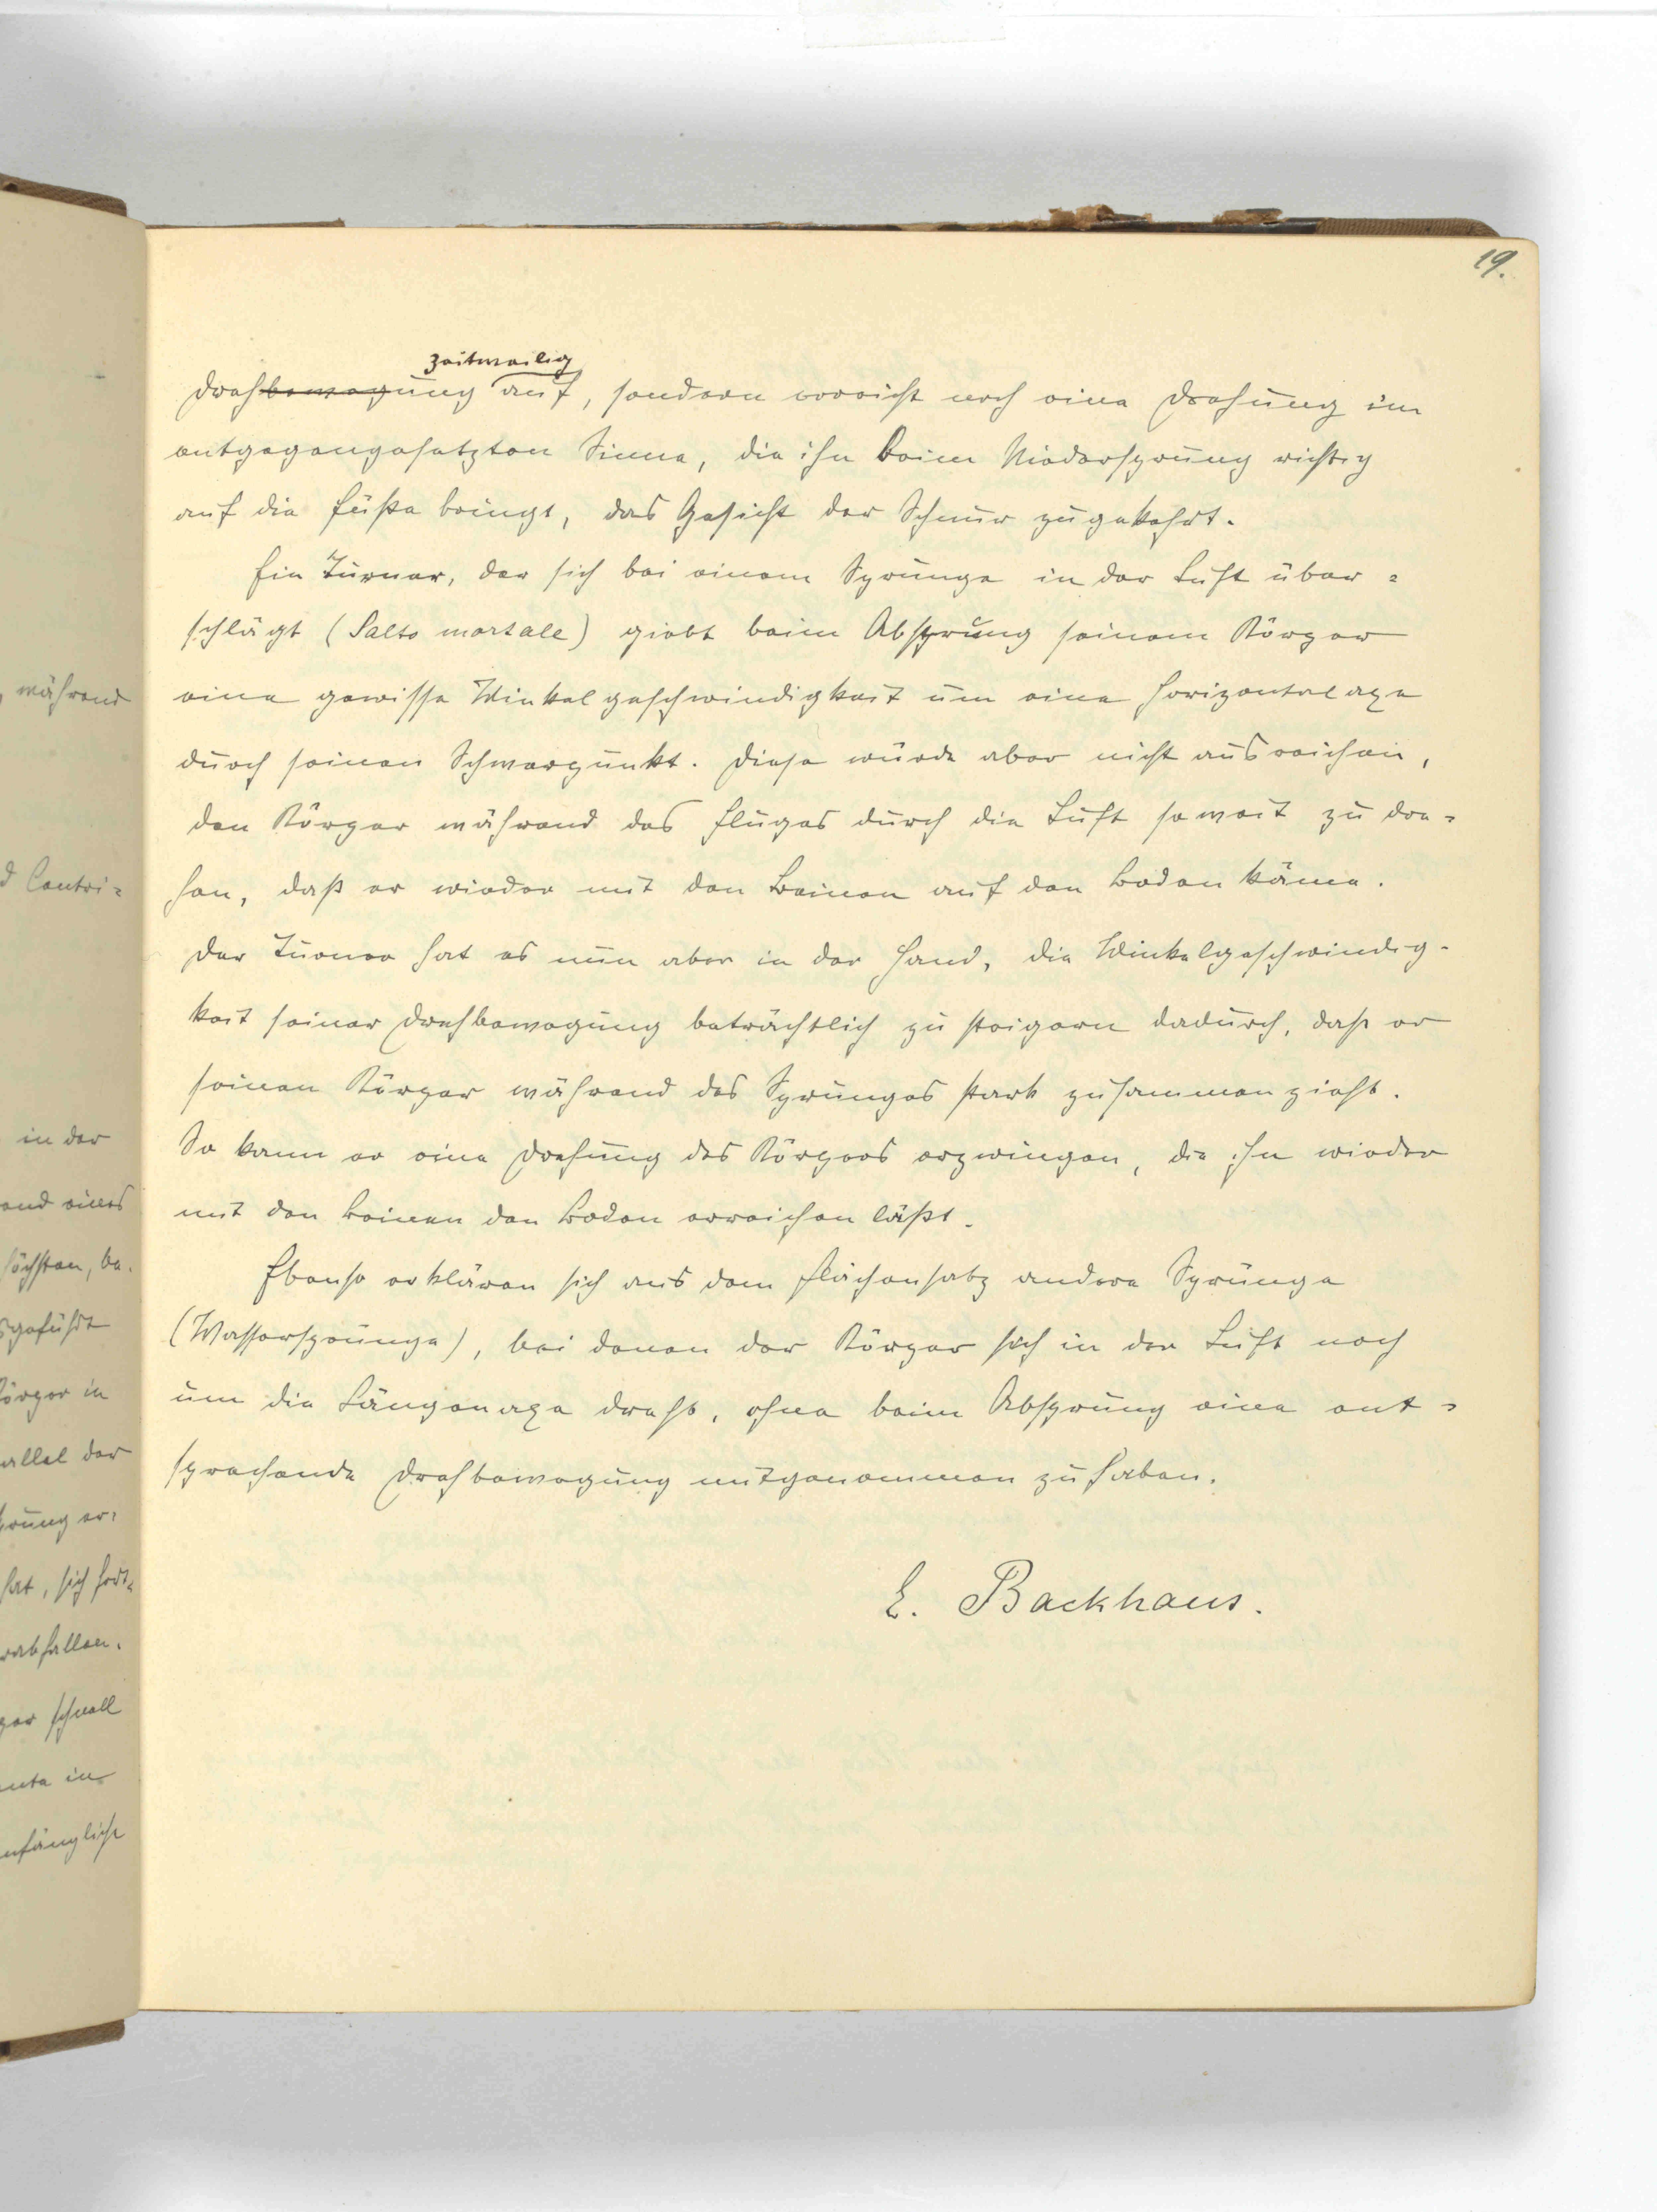 19.
zeitweilig
Drehbewegung auf, sondern erreicht noch eine Drehung im
entgegengesetzten Sinne, die ihn beim Niedersprung richtig
auf die Füße bringt, das Gesicht der Schnur zugekehrt.
Ein Turner, der sich bei einem Sprunge in der Luft über=
schlägt (Salto mortale) giebt beim Absprung seinem Körper
eine gewisse Winkelgeschwindigkeit um eine Horizontalaxe
durch seinen Schwerpunkt. Diese würde aber nicht ausreichen,
den Körper während des Fluges durch die Luft soweit zu dre=
hen, daß er wieder mit den Beinen auf den Boden käme.
Der Turner hat es nun aber in der Hand, die Winkelgeschwindig=
keit seiner Drehbewegung beträchtlich zu steigern dadurch, daß er
seinen Körper während des Sprunges stark zusammenzieht.
So kann er eine Drehung des Körpers erzwingen, die ihn wieder
mit den Beinen den Boden erreichen läßt.
Ebenso erklären sich aus dem Flächensatz andere Sprünge
(Wassersprünge), bei denen der Körper sich in der Luft noch
um die Längenaxe dreht, ohne beim Absprung eine ent=
sprechende Drehbewegung mitgenommen zu haben.
E. Backhaus.
während
d Centri=
in der
and eines
höchsten, be=
sgeführt
örper in
allel der
prung er=
hat, sich fort=
erabfallen.
per schnell
ente in
nfängliche